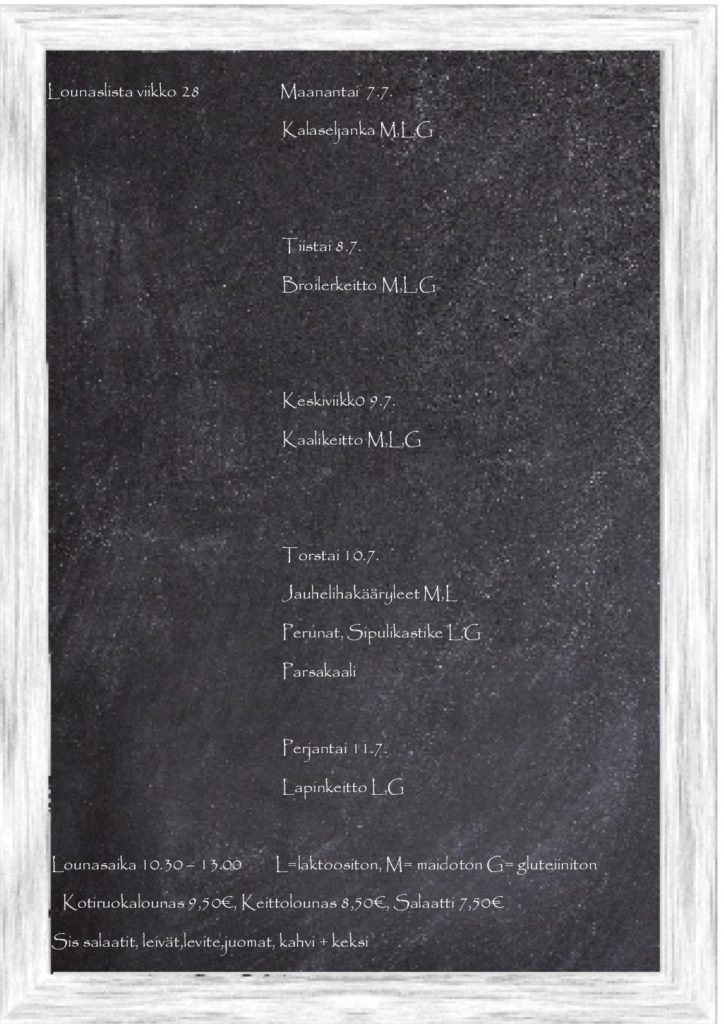 Lounaslista viikko 28 Maanantai 7.7.
Kalaseljanka M,L,G
Tiistai 8.7.
Broilerkeitto M,L,G
Keskiviikko 9.7.
Kaalikeitto M,L,G
Torstai 10.7.
Jauhelihakääryleet M,L
Perunat, Sipulikastike L,G
Parsakaali
Perjantai 11.7.
Lapinkeitto L,G
Lounasaika 10.30 – 13.00 L=laktoositon, M= maidoton G= gluteiiniton
Kotiruokalounas 9,50€, Keittolounas 8,50€, Salaatti 7,50€
Sis salaatit, leivät,levite,juomat, kahvi + keksi